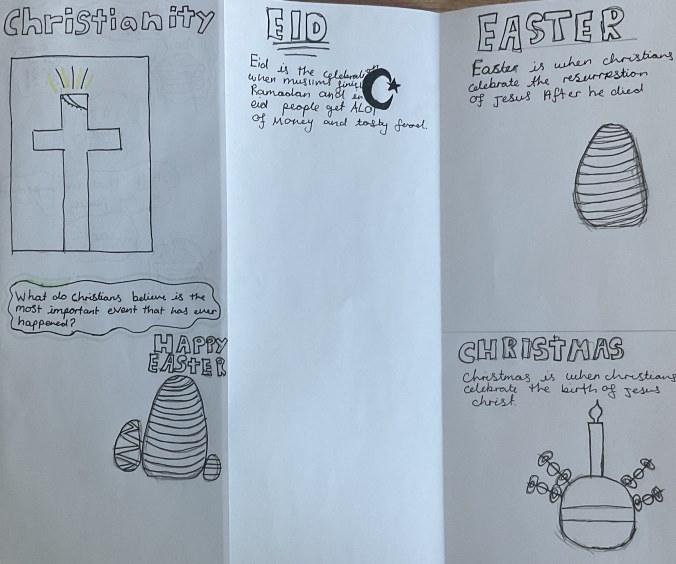 Christianity
What do Christians believe is the
most important event that has ever
happened?
HAPPY
EASTER
EID
Eid is the celebration
when muslims finish
Ramadan and in
eid people get ALOT
of Money and tasty food.
EASTER
Easter is when christians
celebrate the resurrestion
of Jesus After he died
CHRISTMAS
Christmas is when christians
celebrate the birth of Jesus
christ.